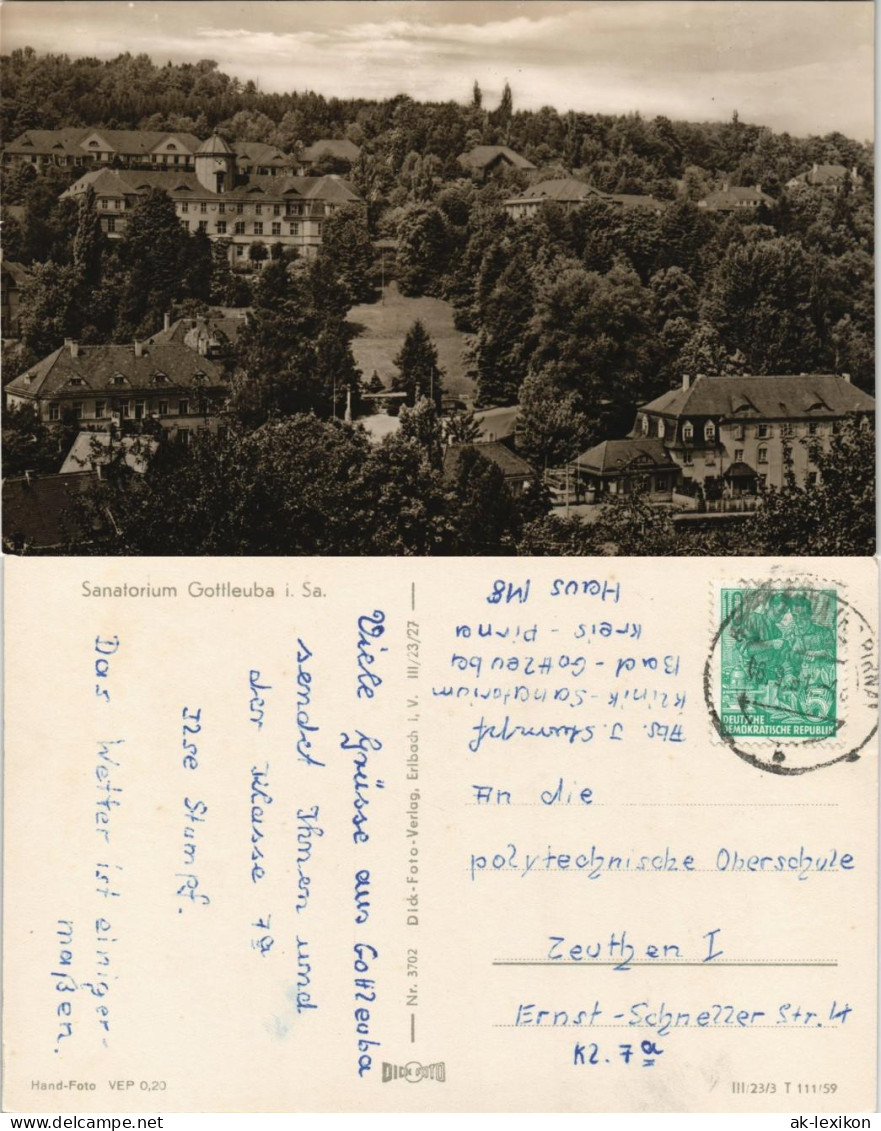 Sanatorium Gottleuba i. Sa.
Viele Grüsse aus Gottleuba
sendet Ihnen und
der Klasse 7a
Ilse Stumpf.
Das Wetter ist einiger-
maßen.
Nr. 3702 Dick-Foto-Verlag, Erlbach i. V. III/23/27
DICK FOTO
Hand-Foto VEP 0,20
Abs. I. Stumpf
Klinik-Sanatorium
Bad-Gottleuba
Kreis-Pirna
Haus M8
10
5
DEUTSCHE
DEMOKRATISCHE REPUBLIK
An die
polytechnische Oberschule
Zeuthen I
Ernst-Schneller Str. 4
Kl. 7a
III/23/3 T 111/59
ak-lexikon.com